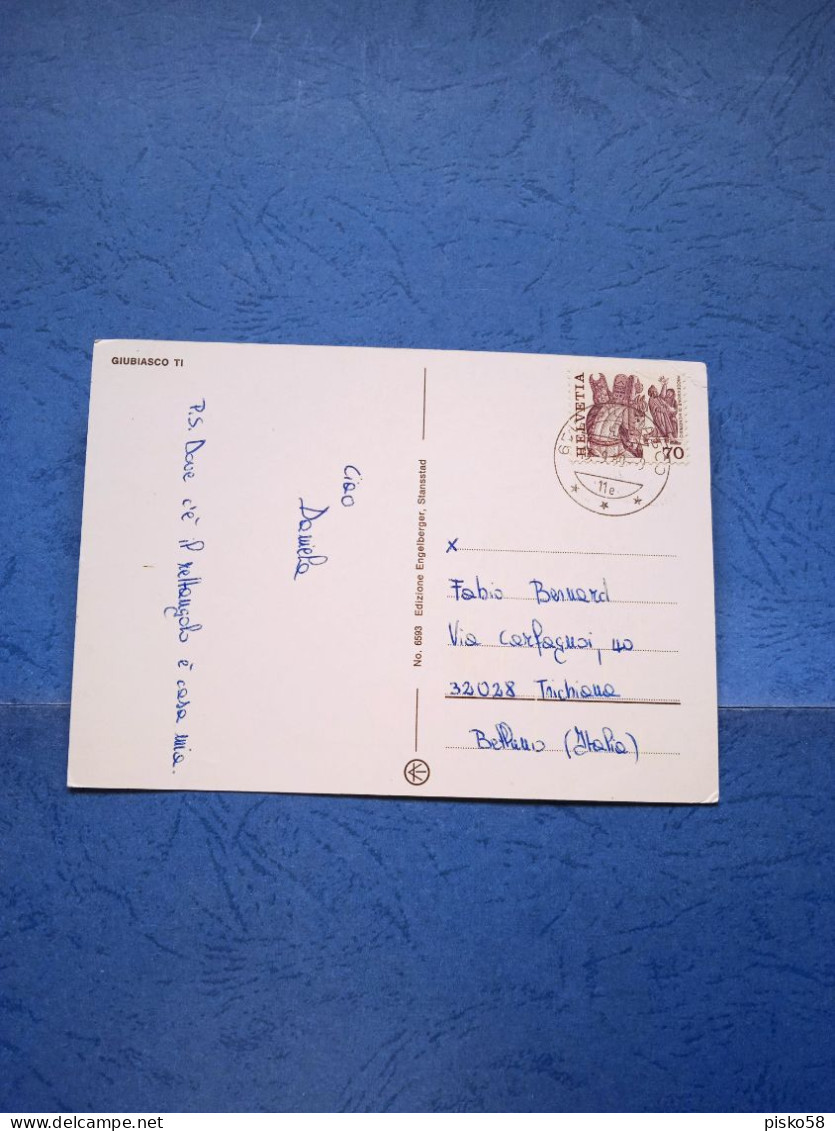 GIUBIASCO TI
Ciao
Daniela
P.S. Dove c'è il rettangolo è casa mia.
No. 6593 Edizione Engelberger, Stansstad
HELVETIA
70
11e
x
Fabio Bernard
Via Carfagnoi, 40
32028 Trichiana
Belluno (Italia)
pisko58